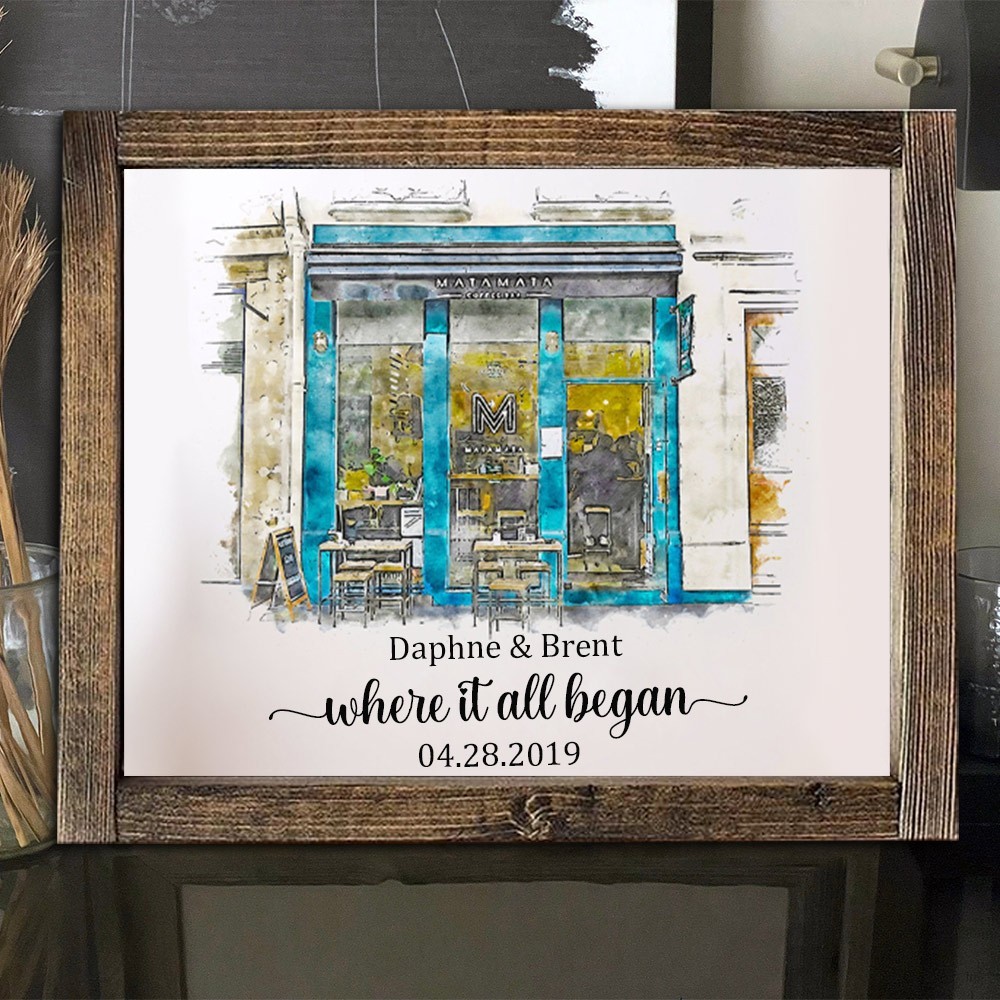 MATAMATA
COFFEE BAR
M
MATAMATA
Daphne & Brent
where it all began
04.28.2019